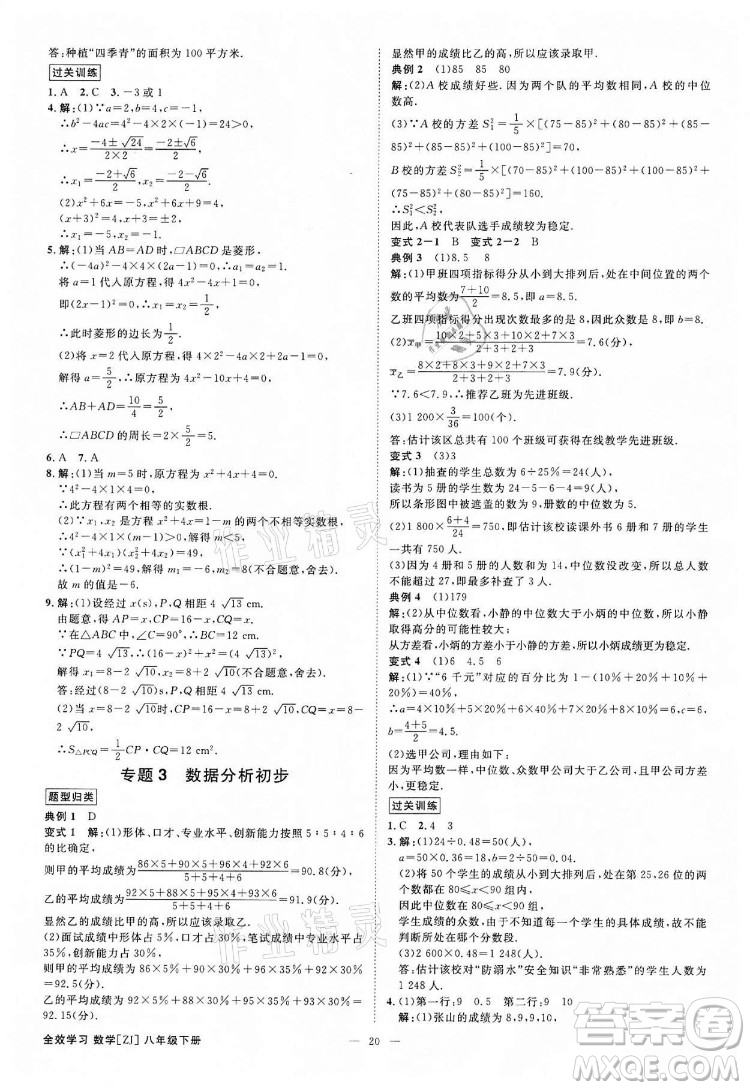 答:种植“四季青”的面积为 100 平方米.
过关训练
1. A 2. C 3. －3 或 1
4. 解:(1)∵a=2,b=4,c=－1
∴b²－4ac=4²－4×2×(－1)=24>0,
∴x=(－4±√24)/(2×2)=(－2±√6)/2,
∴x₁=(－2+√6)/2,x₂=(－2－√6)/2.
(2)x²+6x=3,x²+6x+9=3+9,
(x+3)²=12,
∴x₁=－3+2√3,x₂=－3－2√3.
5. 解:(1)当 AB=AD 时,▱ABCD 是菱形,
∴(－4a)²－4×4(2a－1)=0,
即(2a－2)²=0,∴a=1,
此时原方程为 4x²－4x+1=0,
即(2x－1)²=0,∴x=1/2,
∴此时菱形的边长为 1/2.
(2)将 x=2 代入原方程,得 4×2²－4a×2+2a－1=0,
解得 a=5/2,
将 a=5/2 代入原方程,得 4x²－10x+4=0,
∴AB+AD=10/4=5/2,
∴▱ABCD 的周长为 2×5/2=5.
6. A 7. A
8. 解:(1)当 m=5 时,原方程为 x²+4x+4=0,
∵4²－4×1×4=0,
∴此方程有两个相等的实数根.
(2)∵x₁,x₂ 是方程的两个不相等实数根,
∴4²－4×1×(m－1)>0,解得 m<5.
9. 解:(1)设经过 x(s),P,Q 相距 4√13 cm.
答:经过(8－2√10)s,P,Q 相距 4√13 cm.
∴S△PCQ=1/2 CP·CQ=12 cm².
专题 3 数据分析初步
题型归类
典例 1 D
变式 1 解:(1)形体、口才、专业水平、创新能力按照 5∶5∶4∶6
的比确定,
则甲的平均成绩为(86×5+90×5+96×4+92×6)/(5+5+4+6)=90.8(分),
乙的平均成绩为(92×5+88×5+95×4+93×6)/(5+5+4+6)=91.9(分),
显然乙的成绩比甲的高,所以应该录取乙.
(2)面试成绩中形体占 5%,口才占 30%,笔试成绩中专业水平占
35%,创新能力占 30%,
则甲的平均成绩为 86×5%+90×30%+96×35%+92×30%=
92.5(分),
乙的平均成绩为 92×5%+88×30%+95×35%+93×30%=
92.15(分),
显然甲的成绩比乙的高,所以应该录取甲.
典例 2 (1)85 85 80
解:(2)A 校成绩好些.因为两个队的平均数都相同,A 校的中位
数高.
(3)∵A 校的方差 S₁²=1/5×[(75－85)²+(80－85)²+(85－
85)²+(85－85)²+(100－85)²]=70,
B 校的方差 S₂²=1/5×[(70－85)²+(100－85)²+(100－85)²+
(75－85)²+(80－85)²]=160.
∴S₁²<S₂²,
因此,A 校代表队选手成绩较为稳定.
变式 2－1 B 变式 2－2 B
典例 3 (1)8.5 8
解:(1)甲班四项指标得分从小到大排列后,处在中间位置的两个
数的平均数为(7+10)/2=8.5,因此中位数是 8.5,即 a=8.5,
乙班四项指标得分出现次数最多的是 8,因此众数是 8,即 b=8.
∵7.6<7.9,∴推荐乙班为先进班级.
(3)1 200×3/36=100(个),
答:估计该区总共有 100 个班级可获得在线教学先进班级.
变式 3 (3)3
解:(1)抽查的学生总数为 6÷25%=24(人),
读书为 5 册的学生数为 24－5－6－4=9,
所以条形图中被遮盖的数为 9,册数的中位数为 5.
(2)1 800×(6+4)/24=750,所以估计该校读课外书 6 册的学生
共有 750 人.
(3)因为 4 册和 5 册的人数和为 14,中位数没改变,所以总人数
不能超过 27,即最多补查了 3 人.
典例 4 (1)179
解:(2)从中位数看,小静的中位数大于小炳的中位数,所以小静
取得高分的可能性较大;
从方差看,小炳的方差大于小静的方差,所以小静的成绩更为
稳定.
变式 4 (1)6 4.5 6
解:(1)∵“6 千元”对应的百分比为 1－(10%+20%+10%+
20%)=40%,
∴a=4×10%+5×20%+6×40%+7×20%+8×10%=6,
b=(4+5)/2=4.5,c=6.
(2)选甲公司,理由如下:
因为平均数一样,中位数、众数甲公司大于乙公司,且甲公司的
方差小,更稳定.
过关训练
1. C 2. 4 3
3. 解:(1)24÷0.48=50(人),
a=50×0.04=2,b=2÷50=0.04.
(2)将 50 个学生成绩从小到大排列后,处在第 25,26 位的两个
数都在 80≤x<90 组内,因此中位数在 80≤x<90 组内,
学生成绩的众数在哪一组不能确定,因为每个具体数据不知道,
无法判断哪个数据出现的次数最多.
(3)2 600×0.48=1 248(人).
答:估计该校对“防溺水”安全知识“非常熟悉”的学生大约有
1 248 人.
4. (1)第一行:9 0.5 第二行:9 10
解:(2)张山的成绩为
全效学习 数学[ZJ]八年级下册
— 20 —
作业精灵
作业精灵
答案圈
MXQE.COM